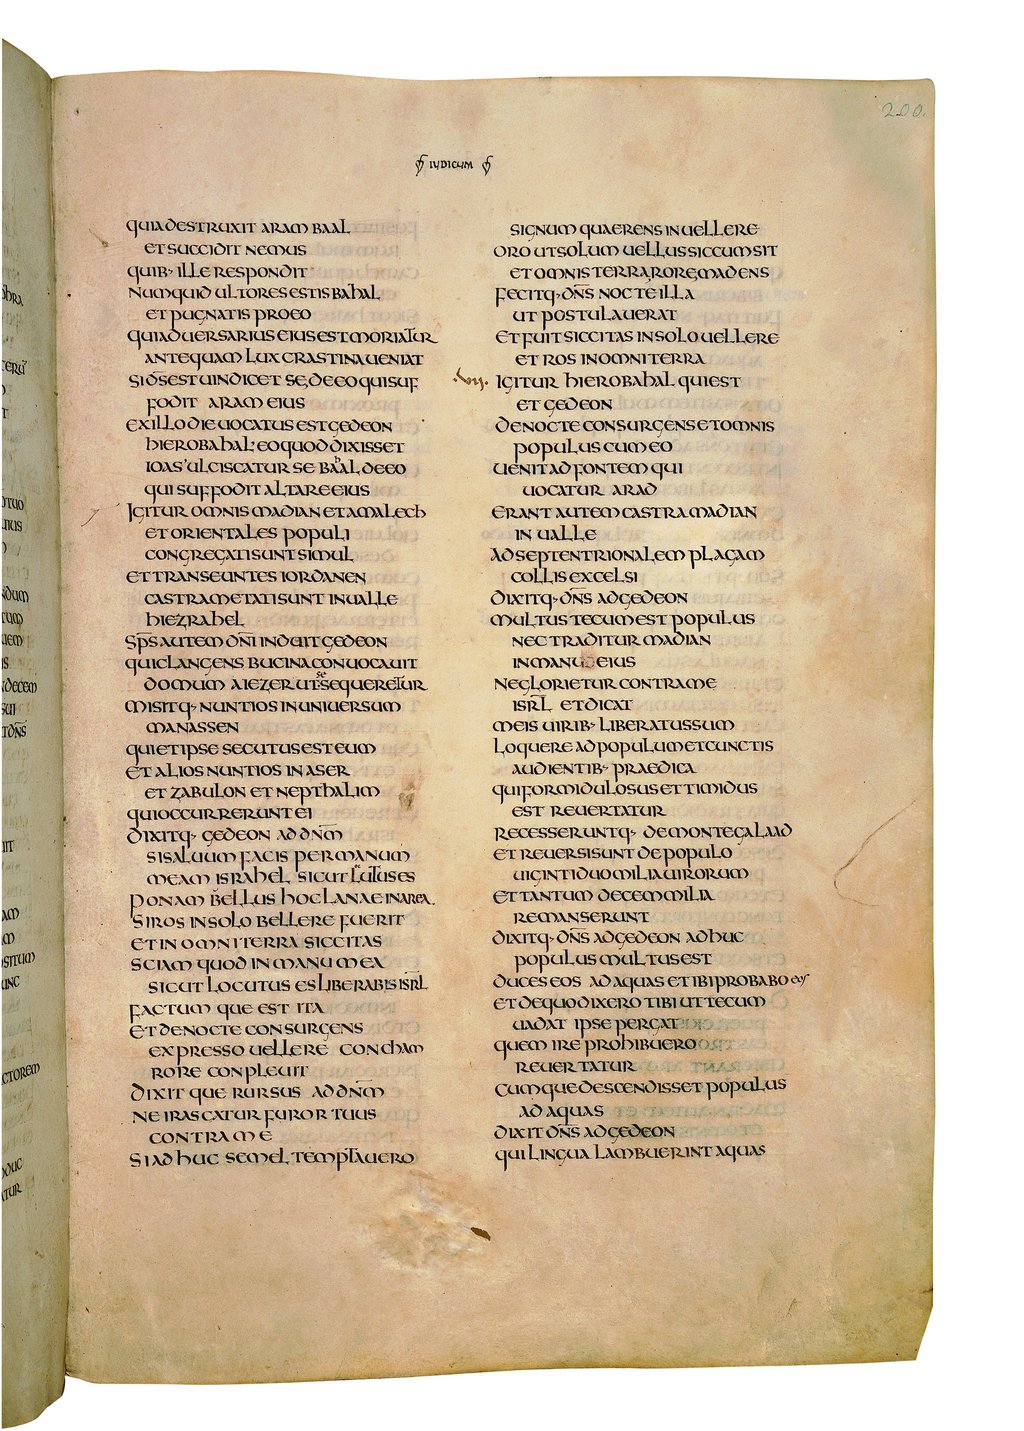 200.
IUDICUM
QUIA DESTRUXIT ARAM BAAL
ET SUCCIDIT NEMUS
QUIB· ILLE RESPONDIT
NUMQUID ULTORES ESTIS BAHAL
ET PUGNATIS PRO EO
QUI ADUERSARIUS EIUS EST MORIATUR
ANTEQUAM LUX CRASTINA UENIAT
SI D̄S EST UINDICET SE DE EO QUI SUF
FODIT ARAM EIUS
EX ILLO DIE UOCATUS EST GEDEON
HIEROBAHAL EO QUOD DIXISSET
IOAS ULCISCATUR SE BAHAL DE EO
QUI SUFFODIT ALTARE EIUS
IGITUR OMNIS MADIAN ET AMALECH
ET ORIENTALES POPULI
CONGREGATI SUNT SIMUL
ET TRANSEUNTES IORDANEN
CASTRAMETATI SUNT IN UALLE
HIEZRAHEL
SP̄S AUTEM DN̄I INDUIT GEDEON
QUI CLANGENS BUCINA CONUOCAUIT
DOMUM AIEZER UT SE SEQUERETUR
MISITQ· NUNTIOS IN UNIUERSUM
MANASSEN
QUI ET IPSE SECUTUS EST EUM
ET ALIOS NUNTIOS IN ASER
ET ZABULON ET NEPTHALIM
QUI OCCURRERUNT EI
DIXITQ· GEDEON AD DN̄M
SI SALUUM FACIS PER MANUM
MEAM ISRAHEL SICUT LOCUTUS ES
PONAM BELLUS HOC LANAE IN AREA
SI ROS IN SOLO BELLERE FUERIT
ET IN OMNI TERRA SICCITAS
SCIAM QUOD IN MANU MEA
SICUT LOCUTUS ES LIBERABIS ISR̄L
FACTUM QUE EST ITA
ET DE NOCTE CONSURGENS
EXPRESSO UELLERE CONCHAM
RORE CONPLEUIT
DIXIT QUE RURSUS AD DN̄M
NE IRASCATUR FUROR TUUS
CONTRA ME
SI ADHUC SEMEL TEMPTAUERO
SIGNUM QUAERENS IN UELLERE
ORO UT SOLUM UELLUS SICCUM SIT
ET OMNIS TERRA RORE MADENS
FECITQ· DN̄S NOCTE ILLA
UT POSTULAUERAT
ET FUIT SICCITAS IN SOLO UELLERE
ET ROS IN OMNI TERRA
·VII· IGITUR HIEROBAHAL QUI EST
ET GEDEON
DE NOCTE CONSURGENS ET OMNIS
POPULUS CUM EO
UENIT AD FONTEM QUI
UOCATUR ARAD
ERANT AUTEM CASTRA MADIAN
IN UALLE
AD SEPTENTRIONALEM PLAGAM
COLLIS EXCELSI
DIXITQ· DN̄S AD GEDEON
MULTUS TECUM EST POPULUS
NEC TRADITUR MADIAN
IN MANU EIUS
NE GLORIETUR CONTRA ME
ISR̄L ET DICAT
MEIS UIRIB· LIBERATUS SUM
LOQUERE AD POPULUM ET CUNCTIS
AUDIENTIB· PRAEDICA
QUI FORMIDULOSUS ET TIMIDUS
EST REUERTATUR
RECESSERUNTQ· DE MONTE GALAAD
ET REUERSI SUNT DE POPULO
UIGINTI DUO MILIA UIRORUM
ET TANTUM DECEM MILIA
REMANSERUNT
DIXITQ· DN̄S AD GEDEON ADHUC
POPULUS MULTUS EST
DUC ES EOS AD AQUAS ET IBI PROBABO eos
ET DE QUO DIXERO TIBI UT TECUM
UADAT IPSE PERGAT
QUEM IRE PROHIBUERO
REUERTATUR
CUMQUE DESCENDISSET POPULUS
AD AQUAS
DIXIT DN̄S AD GEDEON
QUI LINGUA LAMBUERINT AQUAS